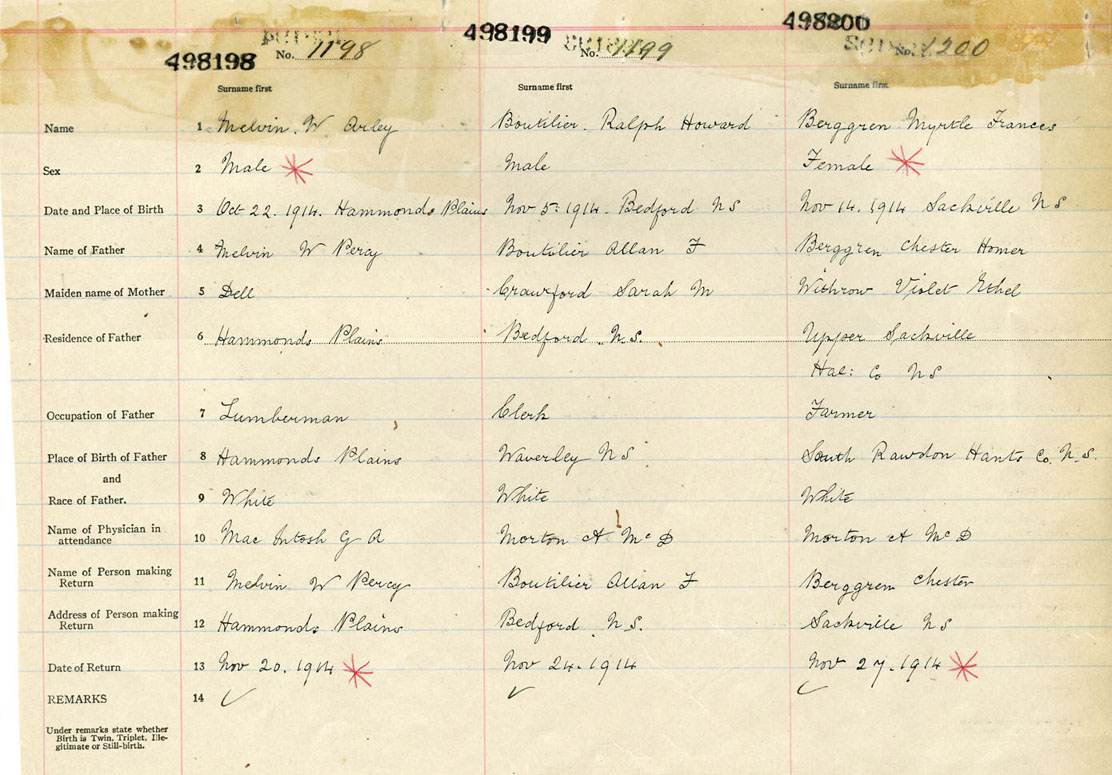 498198 498199 498200
No. 1198 No. 1199 No. 1200
Surname first Surname first Surname first
Name 1 Melvin. W Arley Boutilier. Ralph Howard Berggren Myrtle Frances
Sex 2 Male Male Female
Date and Place of Birth 3 Oct 22. 1914. Hammonds Plains Nov 5. 1914. Bedford NS Nov 14. 1914 Sackville NS
Name of Father 4 Melvin W Percy Boutilier Allan F Berggren Chester Homer
Maiden name of Mother 5 Dell Crawford Sarah M Withrow Violet Ethel
Residence of Father 6 Hammonds Plains Bedford N.S. Upper Sackville
Hal: Co NS
Occupation of Father 7 Lumberman Clerk Farmer
Place of Birth of Father 8 Hammonds Plains Waverley NS South Rawdon Hants Co. N.S.
and
Race of Father. 9 White White White
Name of Physician in
attendance 10 Mac Intosh G A Morton A McD Morton A McD
Name of Person making
Return 11 Melvin W Percy Boutilier Allan F Berggren Chester
Address of Person making
Return 12 Hammonds Plains Bedford N.S. Sackville NS
Date of Return 13 Nov 20. 1914 Nov 24. 1914 Nov 27. 1914
REMARKS 14 ✓ ✓ ✓
Under remarks state whether
Birth is Twin, Triplet, Ille-
gitimate or Still-birth.